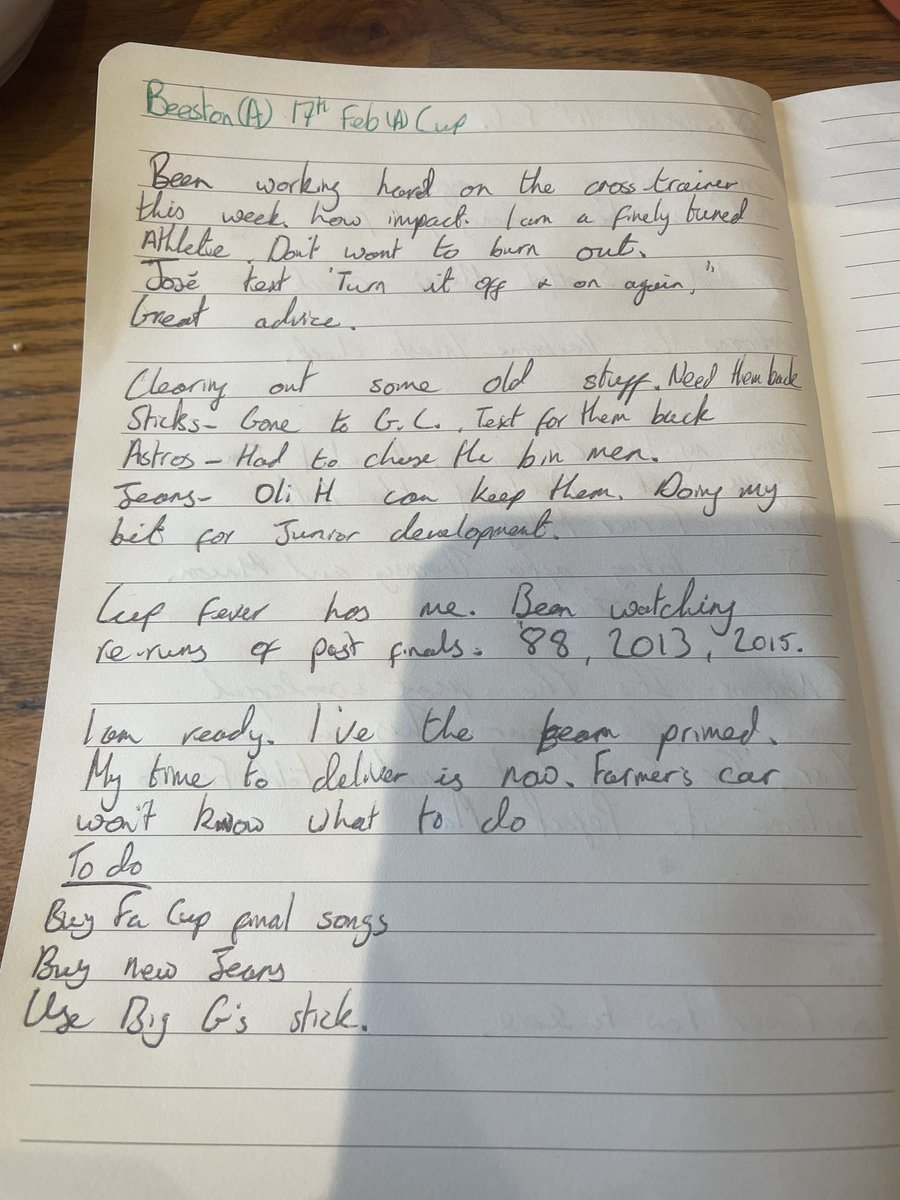 Beeston (A) 17th Feb (A) Cup
Been working hard on the cross-trainer
this week. Low impact. I am a finely tuned
Athlete. Don't want to burn out.
José text 'Turn it off & on again,"
Great advice.
Clearing out some old stuff. Need them back
Sticks - Gone to G.C. . Text for them back
Astros - Had to chase the bin men.
Jeans - Oli H can keep them. Doing my
bit for Junior development.
Cup fever has me. Been watching
re-runs of past finals. '88, 2013, 2015.
I am ready. I've the team primed.
My time to deliver is now. Farmer's car
won't know what to do
To do
Buy Fa Cup final songs
Buy new Jeans
Use Big G's stick.